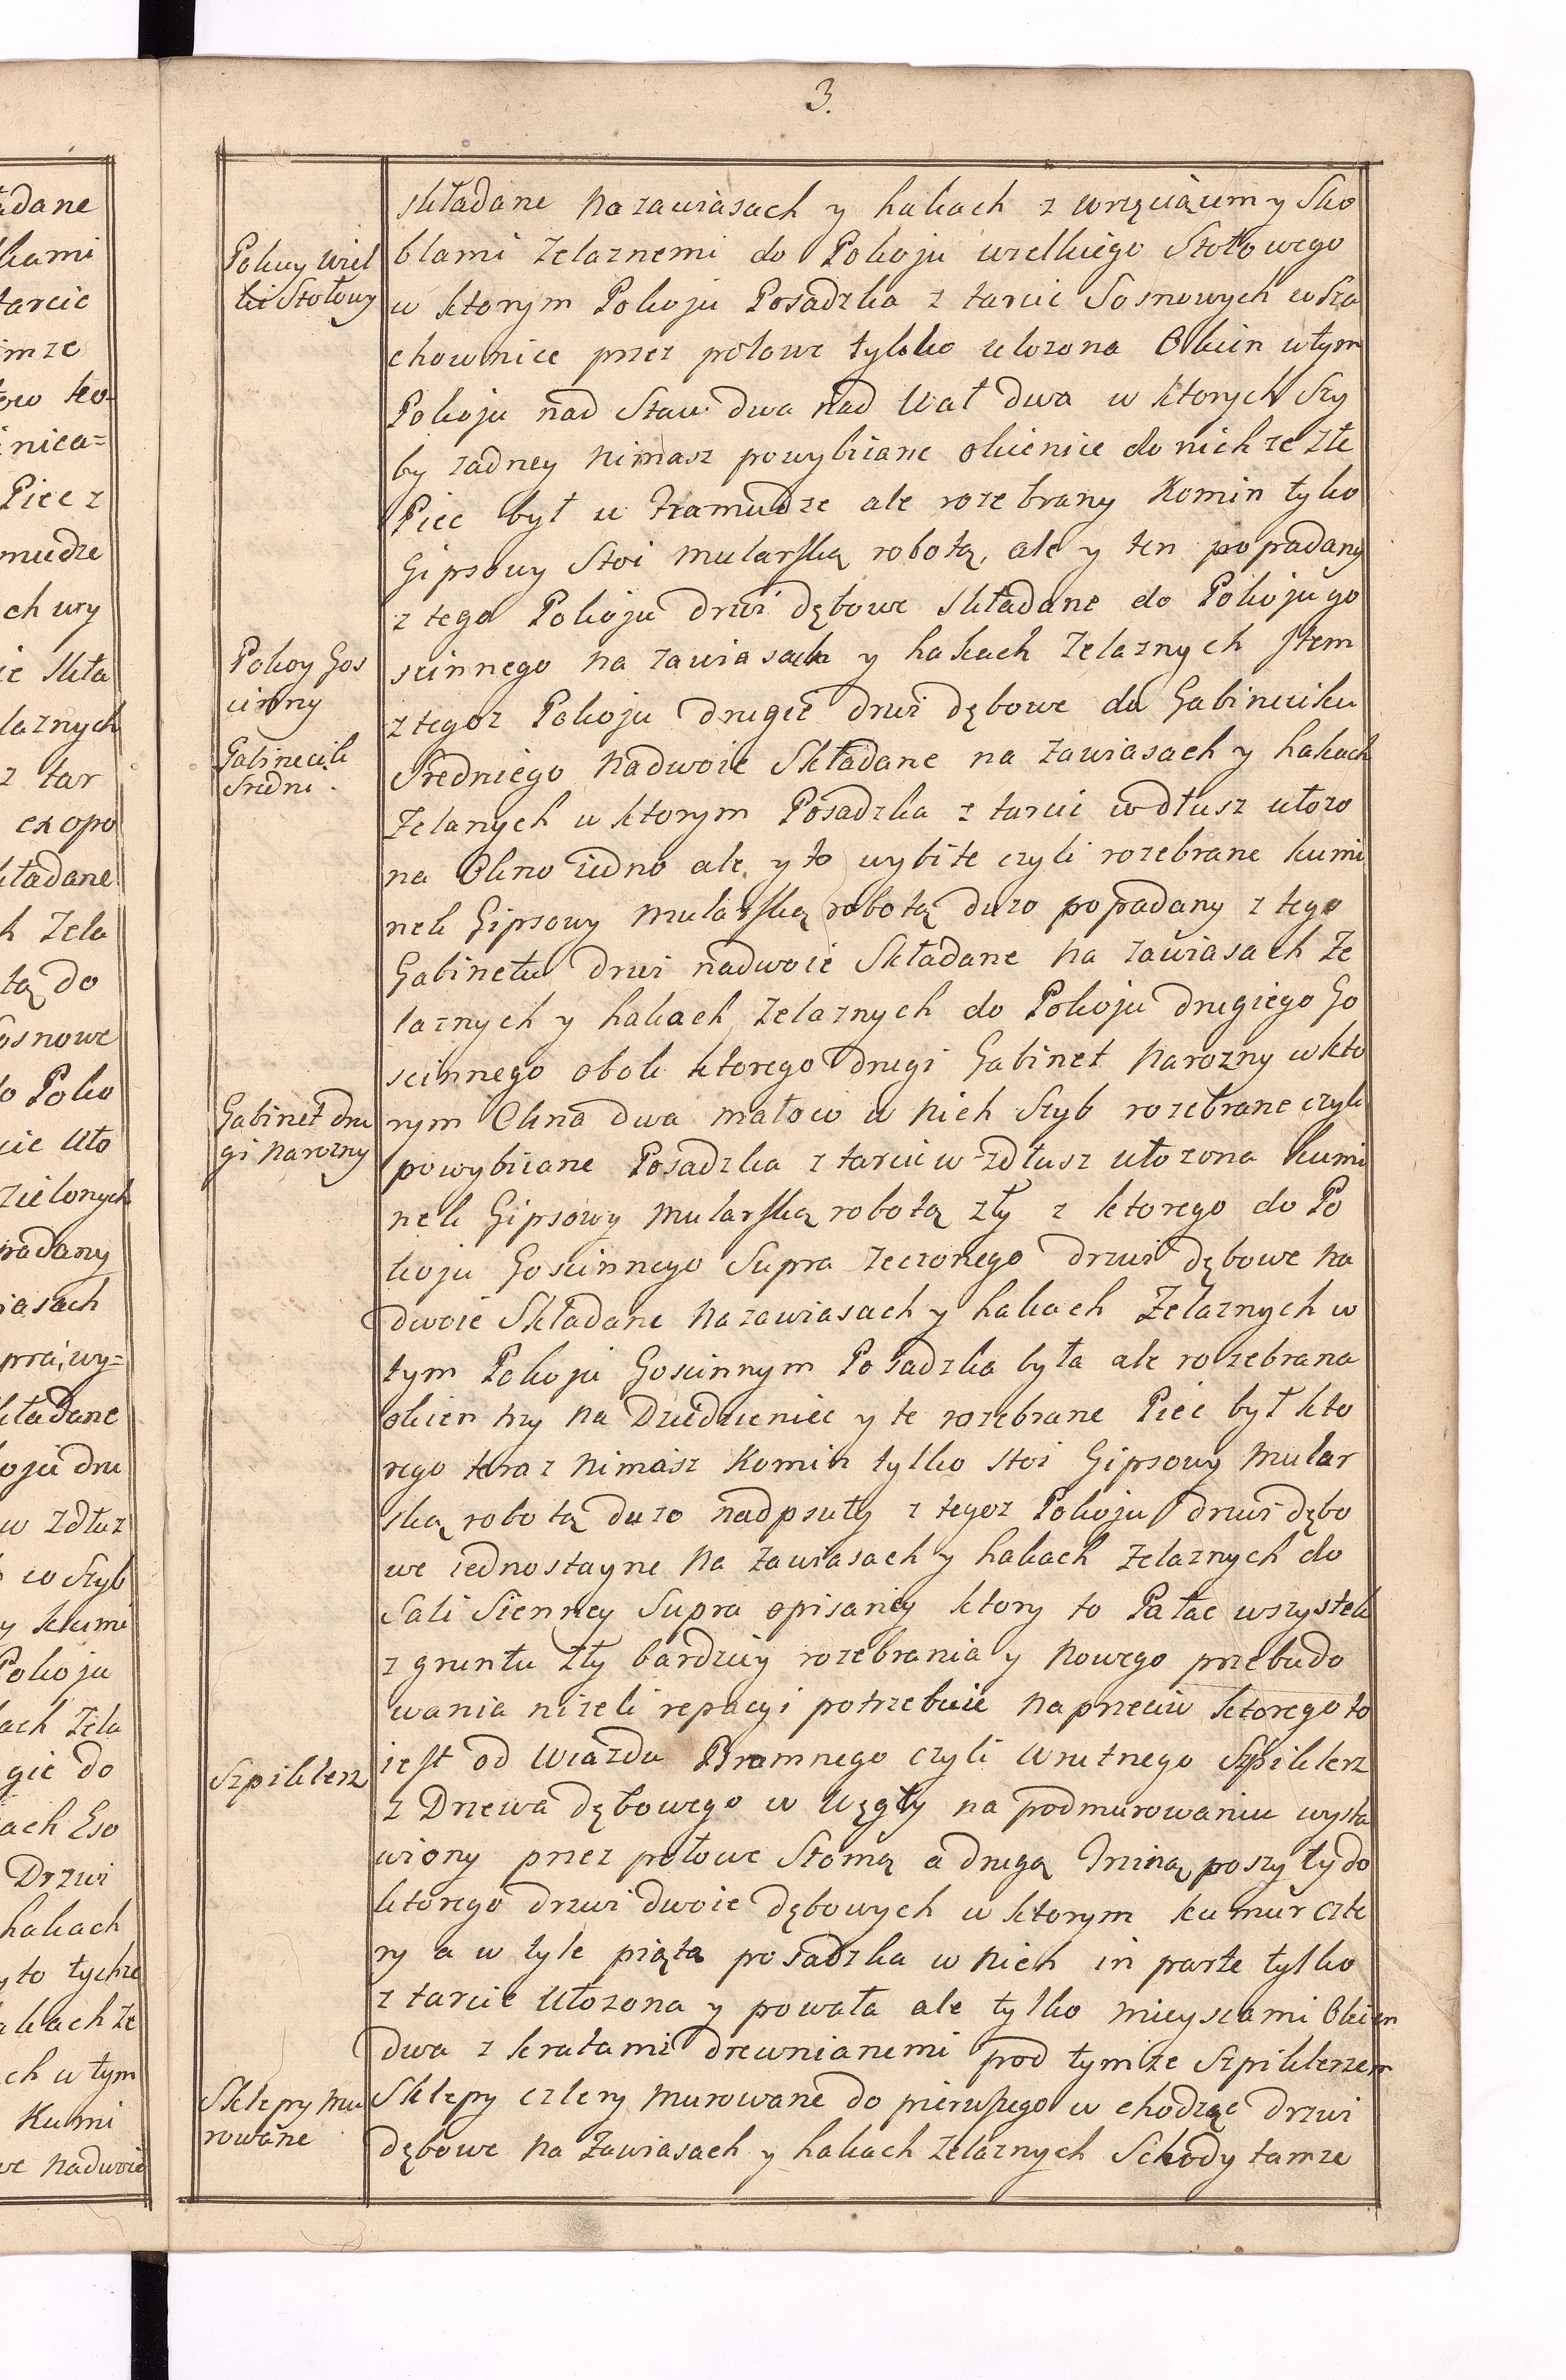 3.
składane na zawiasach y hakach z wrzeciązem y sko
Pokuy wiel
blami zelaznemi do Pokoju wielkiego Stołowego
ki Stołowy
w ktorym Pokoju Posadzka z tarcic Sosnowych w Sza
chownice przez połowe tylko ułozona Okien w tym
Pokoju nad Staw dwa nad Wał dwa w ktorych Szy
by zadney nimasz powybiiane okienice do nich ze złe
Piec był u Framudze ale rozebrany Komin tylko
Gipsowy Stoi mularską robotą, ale y ten popadany
z tego Pokoju drwi dębowe składane do Pokoju go
Pokoy Gos
scinnego na zawiasach y hakach zelaznych Item
cinny
z tegoz Pokoju drugie drwi dębowe do Gabineciku
Gabinecik
Sredniego nadwoie Składane na zawiasach y hakach
Sredni.
Zelanych w ktorym Posadzka z tarcic wdłusz ułozo
na Okno iedno ale y to wybite czyli rozebrane kumi
nek Gipsowy mularską robotą duzo popadany z tego
Gabinetu drwi nadwoie Składane na zawiasach Ze
laznych y hakach zelaznych do Pokoju drugiego Go
scinnego obok ktorego drugi Gabinet narozny w kto
Gabinet dru
rym Okna dwa mało co w nich Szyb rozebrane czyli
gi narozny
powybiiane Posadzka z tarcic w zdłusz ułozona kumi
nek Gipsowy mularską robotą zły z ktorego do Po
koju Goscinnego Supra rzeczonego drwi dębowe na
dwoie Składane na zawiasach y hakach Zelaznych w
tym Pokoju Goscinnym Posadzka była ale rozebrana
okien trzy na Dziedzieniec y te rozebrane Piec był kto
rego teraz nimasz Komin tylko stoi Gipsowy mular
ską robotą duzo nadpsuły z tegoz Pokoju drwi dębo
we iednostayne na zawiasach y hakach zelaznych do
Sali Sienney Supra opisaney ktory to Pałac wszystek
z gruntu zły bardziey rozebrania y nowego przebudo
wania nizeli repacyi potrzebuie naprzeciw ktorego to
jest od Wiazdu Bramnego czyli Wrutnego Szpiklerz
Szpiklerz
z Drzewa dębowego w Węgły na podmurowaniu wysta
wiony przez połowe Słomą a drugą Trzciną poszyty do
ktorego drzwi dwoie dębowych w ktorym kumur czte
ry a w tyle piąta posadzka w nich in parte tylko
z tarcic Ułozona y powała ale tylko mieyscami Okien
dwa z kratami drewnianemi pod tymze Szpiklerzem
Sklepy mu
Sklepy cztery murowane do pierwszego w chodząc drzwi
rowane
dębowe na zawiasach y hakach zelaznych Schody tamze